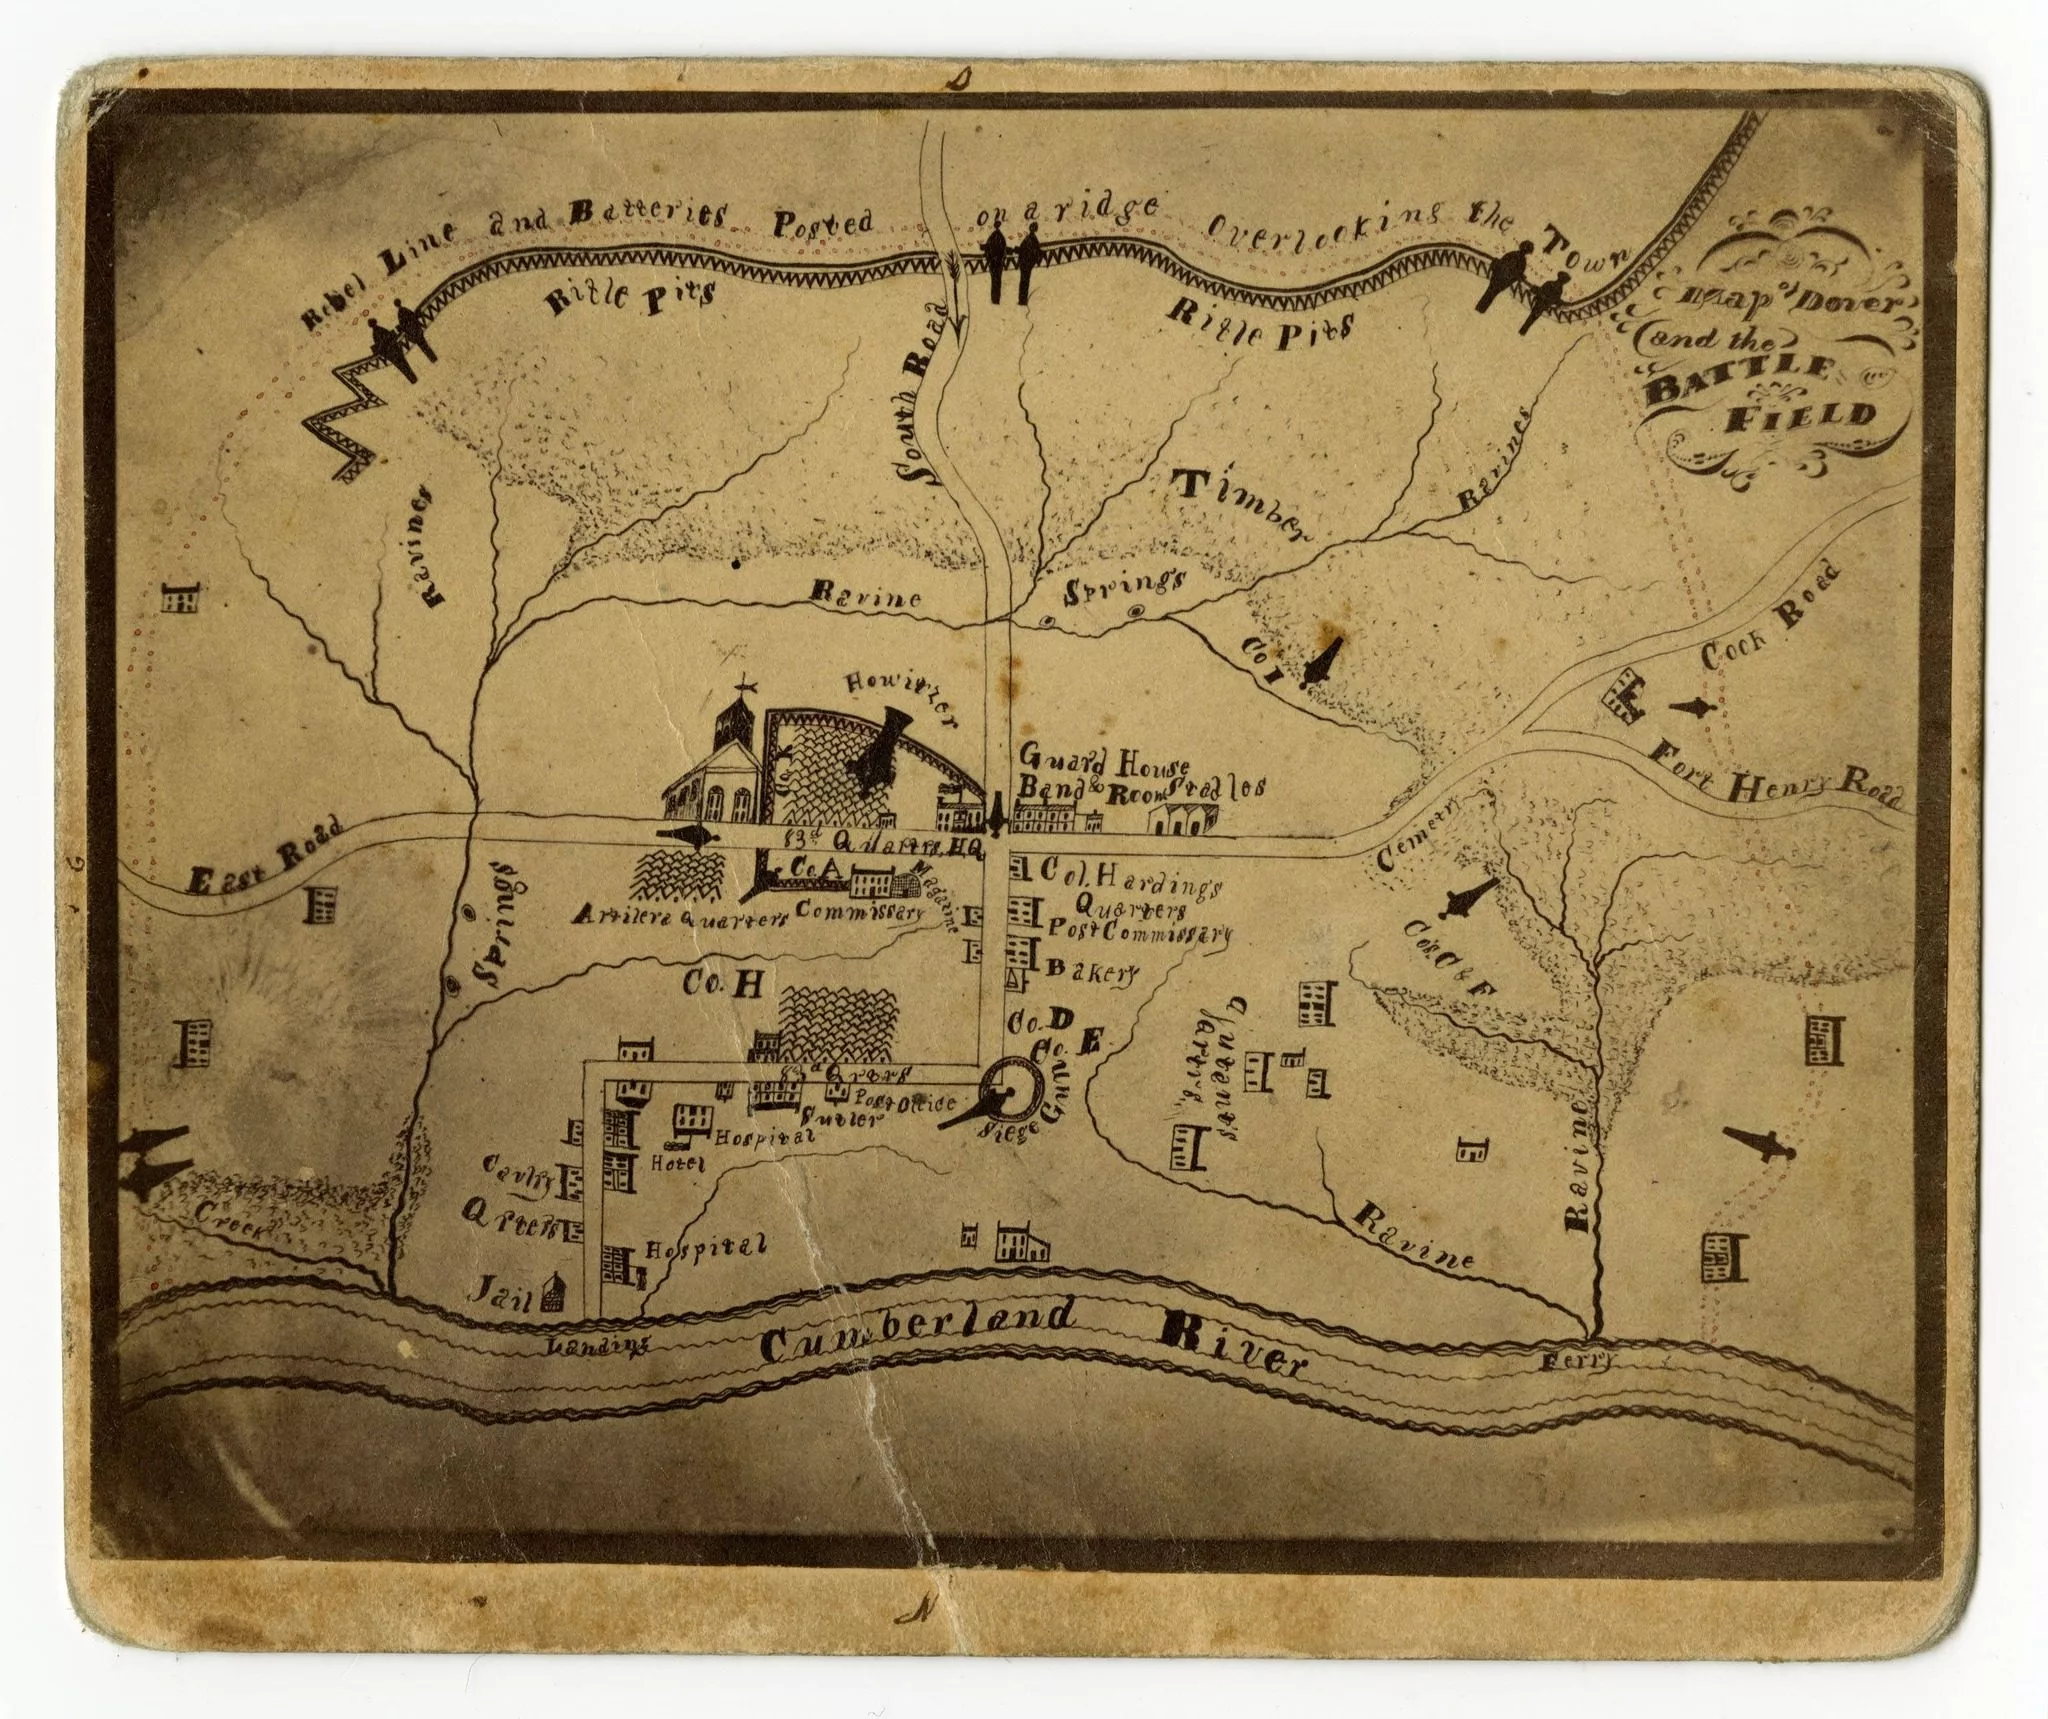 S
Rebel Line and Batteries Posted on a ridge Overlooking the Town
Rifle Pits
Rifle Pits
Map of Dover
and the
BATTLE
FIELD
South Road
Timber
Ravines
Ravines
Ravine
Springs
Co I
Cock Road
Howitzer
Guard House
Band & Room Stables
Fort Henry Road
East Road
83d Quarters, HQ
Cemetry
Co. A
Magazine
Col. Hardings
Quarters
Artilera Quarters
Commissary
Post Commissary
Springs
Co's C & F
Bakery
Co. H
Co. D
Co. E
83d Qrters
Siege Gun
Post Office
Sutler
Hospital
Hotel
Cavlry
Qrters
Creek
Ravine
Ravine
Hospital
Jail
Landing
Cumberland River
Ferry
N